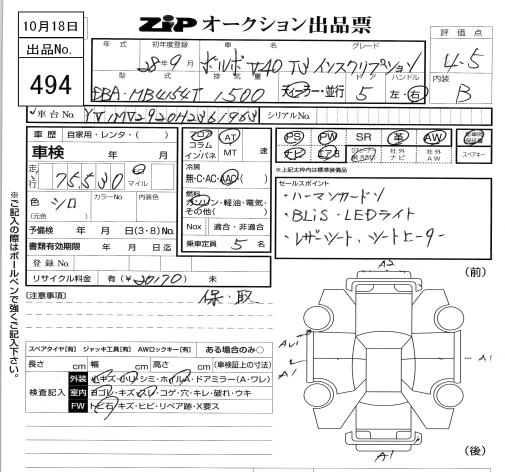 10月18日
ZiP オークション出品票
出品No.
494
評価点
4.5
内装
B
年式 初年度登録 車名 グレード
28年9月 ボルボ V40 T3 インスクリプション
型式 排気量 ドア ハンドル
DBA-MB4154T 1500 ディーラー・並行 5 左・右
車台No. シリアルNo.
車歴 自家用・レンタ・( )
車検 年 月
走行 75,530 km マイル
色 シロ (元色) カラーNo. 内装色
予備検 年 月 日(3・8)No.
書類有効期限 年 月 日迄
登録No.
リサイクル料金 有(¥20170) 未
フロア コラム インパネ AT MT 速
冷房
無・C・AC・AAC
燃料
ガソリン・軽油・電気・その他( )
Nox 適合・非適合
乗車定員 5 名
PS PW SR 革 AW
社外ナビ 社外AW
スペアキー
※上記太枠内は標準装備品
セールスポイント
・ハーマンカードン
・BLiS・LEDライト
・レザーシート、シートヒーター
※ご記入の際はボールペンで強くご記入下さい。
(注意事項) 保・取
スペアタイヤ[有] ジャッキ工具[有] AWロックキー[有] ある場合のみ○
長さ cm 幅 cm 高さ cm (車検証上の寸法)
検査記入
外装 小キズ・小リ・シミ・ホイルA・ドアミラー(A・ワレ)
室内 ヨゴレ・キズ・スレ・コゲ・穴・キレ・破れ・ウキ
FW トビ石・キズ・ヒビ・リペア跡・X要ス
(前)
A2
A1
A1
A1
(後)